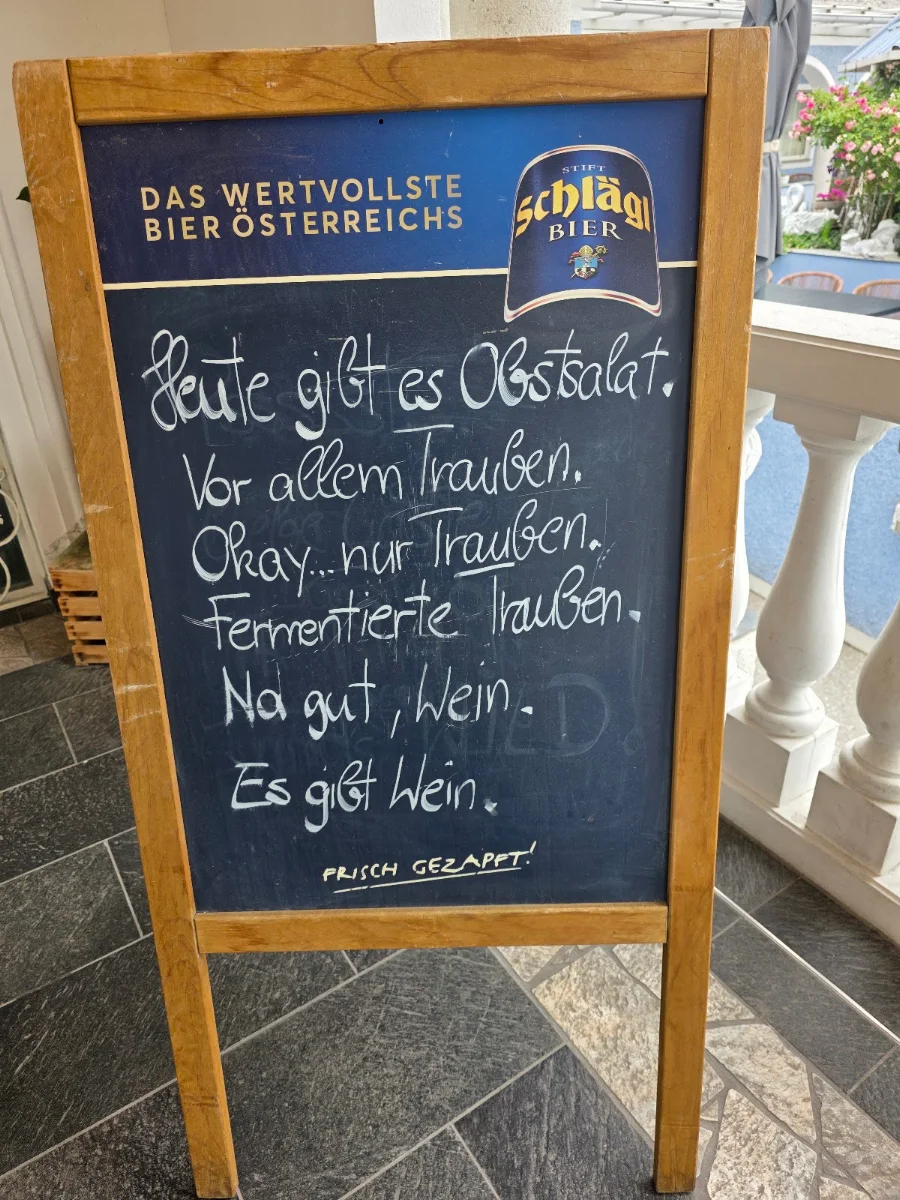 DAS WERTVOLLSTE
BIER ÖSTERREICHS
STIFT
Schlägl
BIER
Heute gibt es Obstsalat.
Vor allem Trauben.
Okay...nur Trauben.
Fermentierte Trauben.
Na gut, Wein.
Es gibt Wein.
FRISCH GEZAPFT!